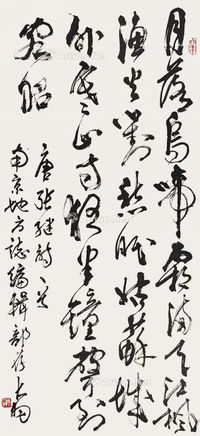 月落烏啼霜滿天江楓
漁火對愁眠姑蘇城
外寒山寺夜半鐘聲到
客船
唐張繼詩
南京地方誌編輯部